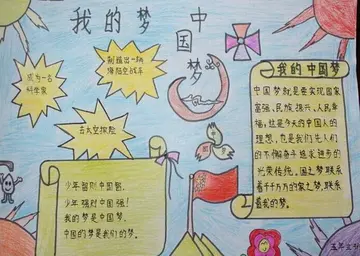 我的梦
中国梦
成为一名
科学家
制造出一辆
海陆空战车
去太空探险
我的中国梦
中国梦就是要实现国家
富强、民族振兴、人民幸
福,这是今天的中国人的
理想,也是我们先人们
的不懈奋斗追求进步的
光荣传统。国之梦联系
着千千万万的家之梦,联系
着我的梦。
少年智则中国智,
少年强则中国强!
我的梦是中国梦,
中国的梦是我们的梦。